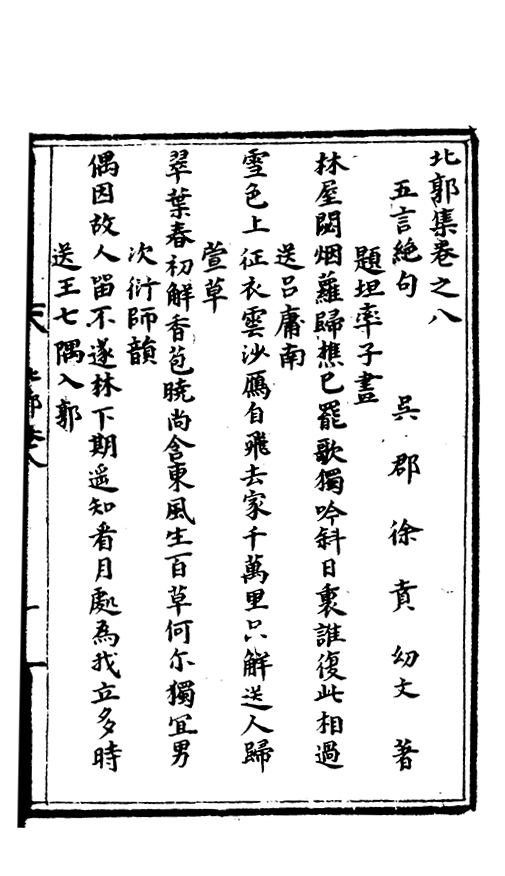 北郭集卷之八
五言絶句　吳郡徐賁幼文著
題坦率子畫
林屋閟烟蘿歸樵已罷歌獨吟斜日裏誰復此相過
送呂庸南
雪色上征衣雲沙鴈自飛去家千萬里只解送人歸
萱草
翠葉春初解香苞曉尚含東風生百草何尓獨冝男
次衍師韻
偶因故人畱不遂林下期遥知看月處為我立多時
送王七隅入郭